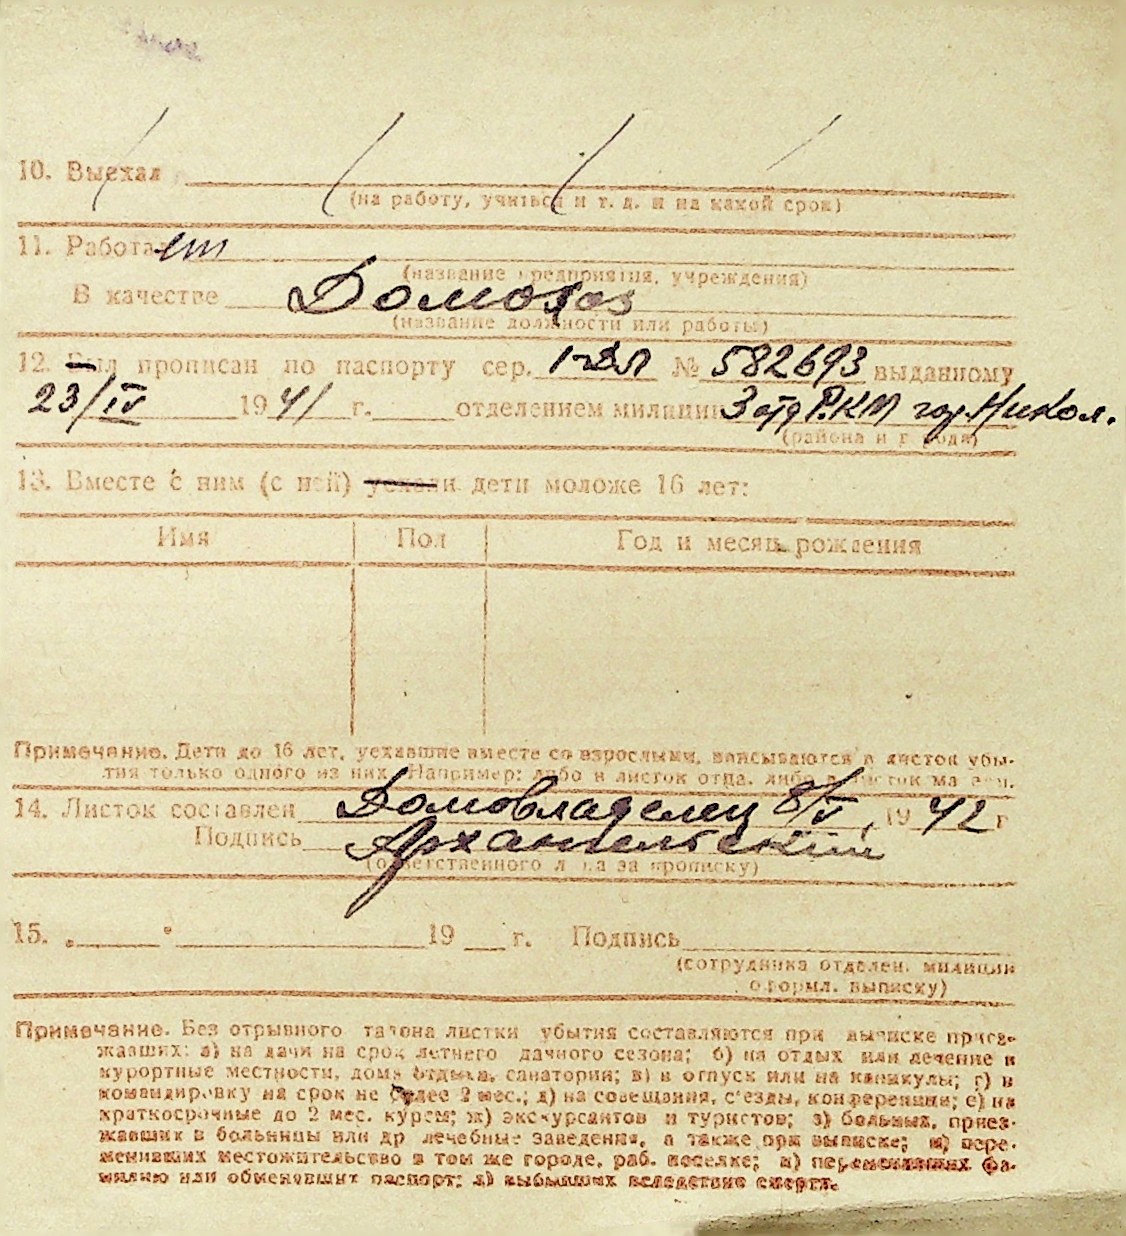 10. Выехал
(на работу, учиться и т. д. и на какой срок)
11. Работает
(название предприятия, учреждения)
В качестве Домохоз
(название должности или работы)
12. Был прописан по паспорту сер. № 582693 выданному
23/IV 1941 г. отделением милиции 3 отд РКМ гор. Никол.
(района и города)
13. Вместе с ним (с ней) уехали дети моложе 16 лет:
Имя Пол Год и месяц рождения
Примечание. Дети до 16 лет, уехавшие вместе со взрослыми, вписываются в листок убы-
тия только одного из них. Например: либо в листок отца, либо в листок матери.
14. Листок составлен Домовладелец 8/V 1942 г
Подпись Архангельский
(ответственного лица за прописку)
15. „ “ 19 г. Подпись
(сотрудника отделен. милиции
оформл. выписку)
Примечание. Без отрывного талона листки убытия составляются при выписке приез-
жавших: а) на дачи на срок летнего дачного сезона; б) на отдых или лечение в
курортные местности, дома отдыха, санатории; в) в отпуск или на каникулы; г) в
командировку на срок не более 2 мес.; д) на совещания, с'езды, конференции; е) на
краткосрочные до 2 мес. курсы; ж) экскурсантов и туристов; з) больных, приез-
жавших в больницы или др лечебные заведения, а также при выписке; и) пере-
менивших местожительство в том же городе, раб. поселке; к) переменивших фа-
милию или обменявших паспорт; л) выбывших вследствие смерти.